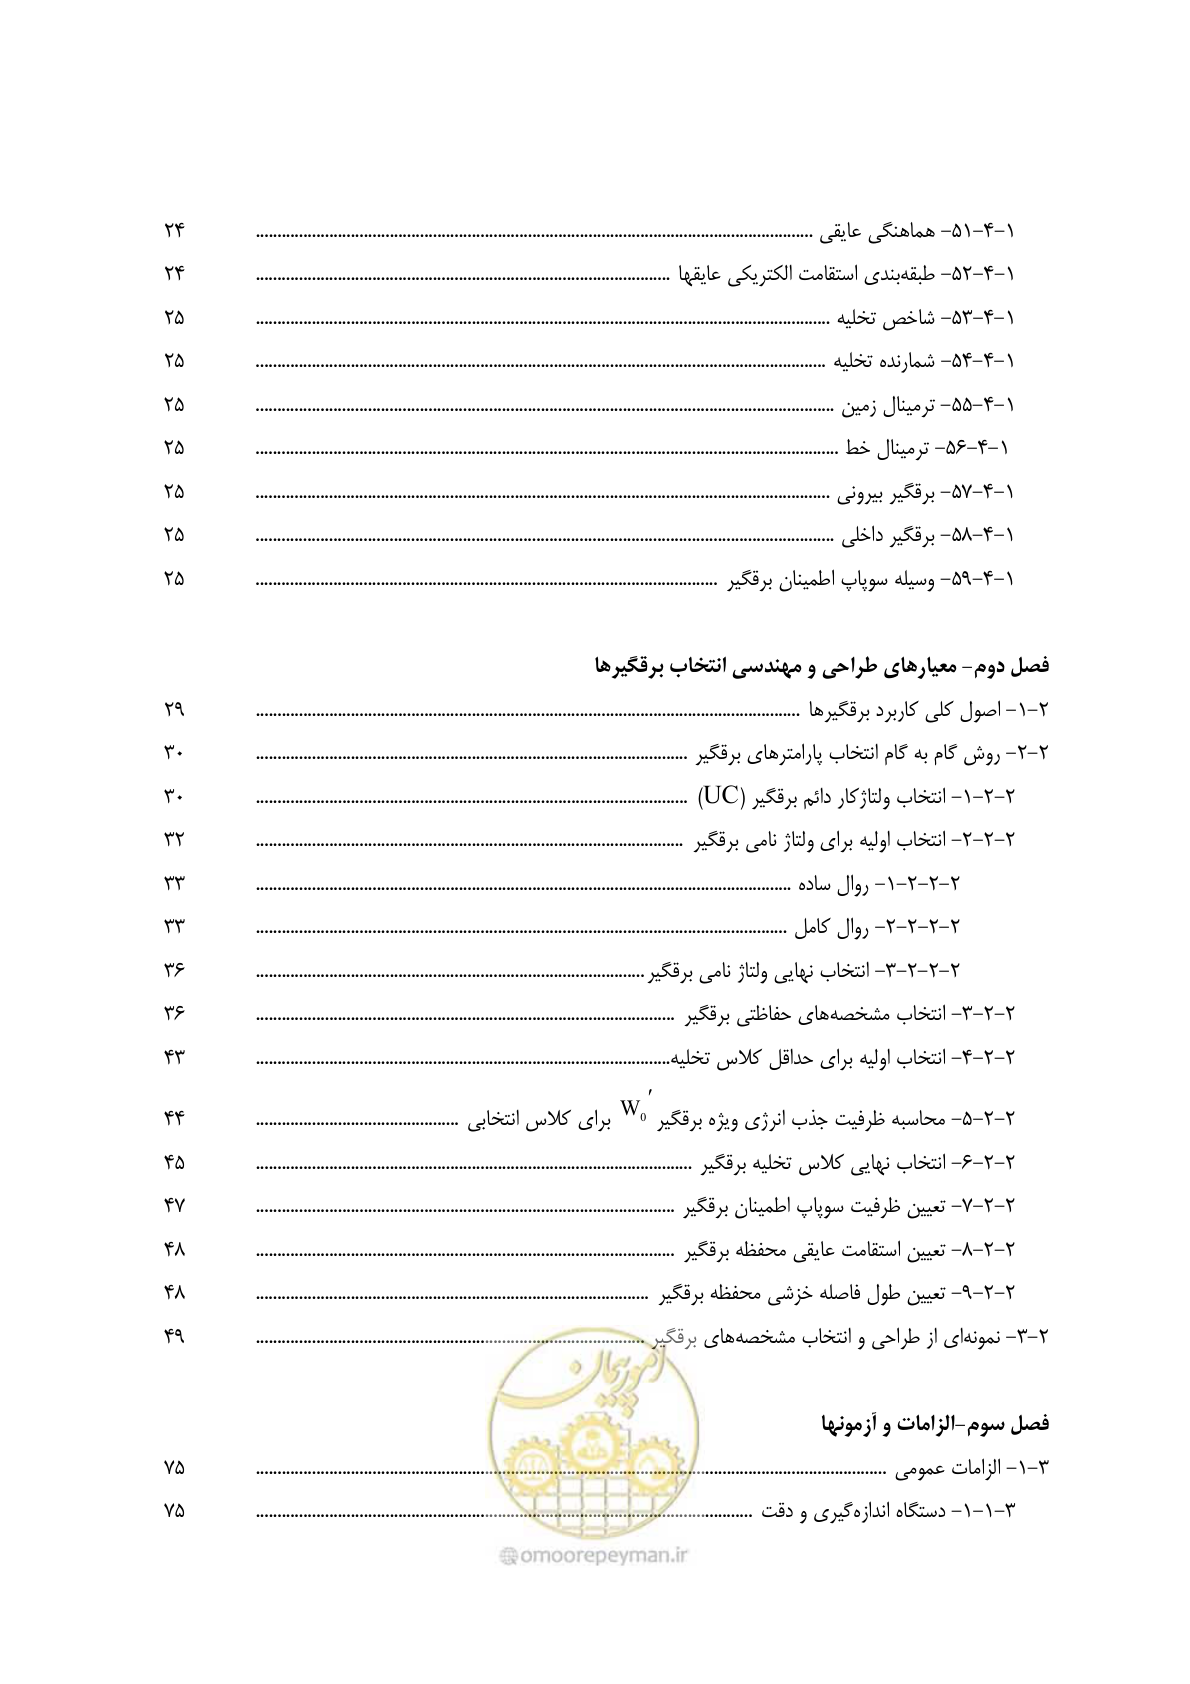 ۱-۴-۵۱- هماهنگی عایقی ........................ ۲۴
۱-۴-۵۲- طبقه‌بندی استقامت الکتریکی عایقها ........................ ۲۴
۱-۴-۵۳- شاخص تخلیه ........................ ۲۵
۱-۴-۵۴- شمارنده تخلیه ........................ ۲۵
۱-۴-۵۵- ترمینال زمین ........................ ۲۵
۱-۴-۵۶- ترمینال خط ........................ ۲۵
۱-۴-۵۷- برقگیر بیرونی ........................ ۲۵
۱-۴-۵۸- برقگیر داخلی ........................ ۲۵
۱-۴-۵۹- وسیله سوپاپ اطمینان برقگیر ........................ ۲۵
فصل دوم- معیارهای طراحی و مهندسی انتخاب برقگیرها
۲-۱- اصول کلی کاربرد برقگیرها ........................ ۲۹
۲-۲- روش گام به گام انتخاب پارامترهای برقگیر ........................ ۳۰
۲-۲-۱- انتخاب ولتاژکار دائم برقگیر (UC) ........................ ۳۰
۲-۲-۲- انتخاب اولیه برای ولتاژ نامی برقگیر ........................ ۳۲
۲-۲-۲-۱- روال ساده ........................ ۳۳
۲-۲-۲-۲- روال کامل ........................ ۳۳
۲-۲-۲-۳- انتخاب نهایی ولتاژ نامی برقگیر ........................ ۳۶
۲-۲-۳- انتخاب مشخصه‌های حفاظتی برقگیر ........................ ۳۶
۲-۲-۴- انتخاب اولیه برای حداقل کلاس تخلیه........................ ۴۳
۲-۲-۵- محاسبه ظرفیت جذب انرژی ویژه برقگیر W₀′ برای کلاس انتخابی ........................ ۴۴
۲-۲-۶- انتخاب نهایی کلاس تخلیه برقگیر ........................ ۴۵
۲-۲-۷- تعیین ظرفیت سوپاپ اطمینان برقگیر ........................ ۴۷
۲-۲-۸- تعیین استقامت عایقی محفظه برقگیر ........................ ۴۸
۲-۲-۹- تعیین طول فاصله خزشی محفظه برقگیر ........................ ۴۸
۲-۳- نمونه‌ای از طراحی و انتخاب مشخصه‌های برقگیر ........................ ۴۹
امور پیمان
فصل سوم-الزامات و آزمونها
۳-۱- الزامات عمومی ........................ ۷۵
۳-۱-۱- دستگاه اندازه‌گیری و دقت ........................ ۷۵
@omoorepeyman.ir